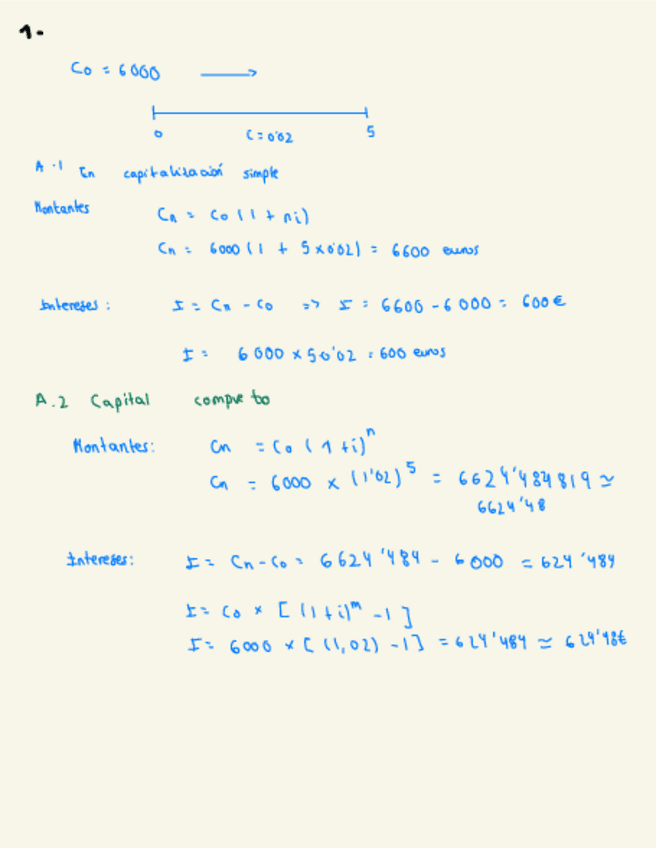 1.
Co = 6000 →
0 i = 0'02 5
A.1 En capitalización simple
Montantes Cn = Co (1 + ni)
Cn = 6000 (1 + 5 x 0'02) = 6600 euros
Intereses : I = Cn - Co => I = 6600 - 6000 = 600 €
I = 6000 x 5 0'02 = 600 euros
A.2 Capital compueto
Montantes: Cn = Co (1 + i)ⁿ
Cn = 6000 x (1'02)⁵ = 6624'484819 ≃
6624'48
Intereses: I = Cn - Co = 6624'484 - 6000 = 624'484
I = Co x [ (1 + i)ᵐ - 1 ]
I = 6000 x [ (1,02) - 1 ] = 624'484 ≃ 624'48€